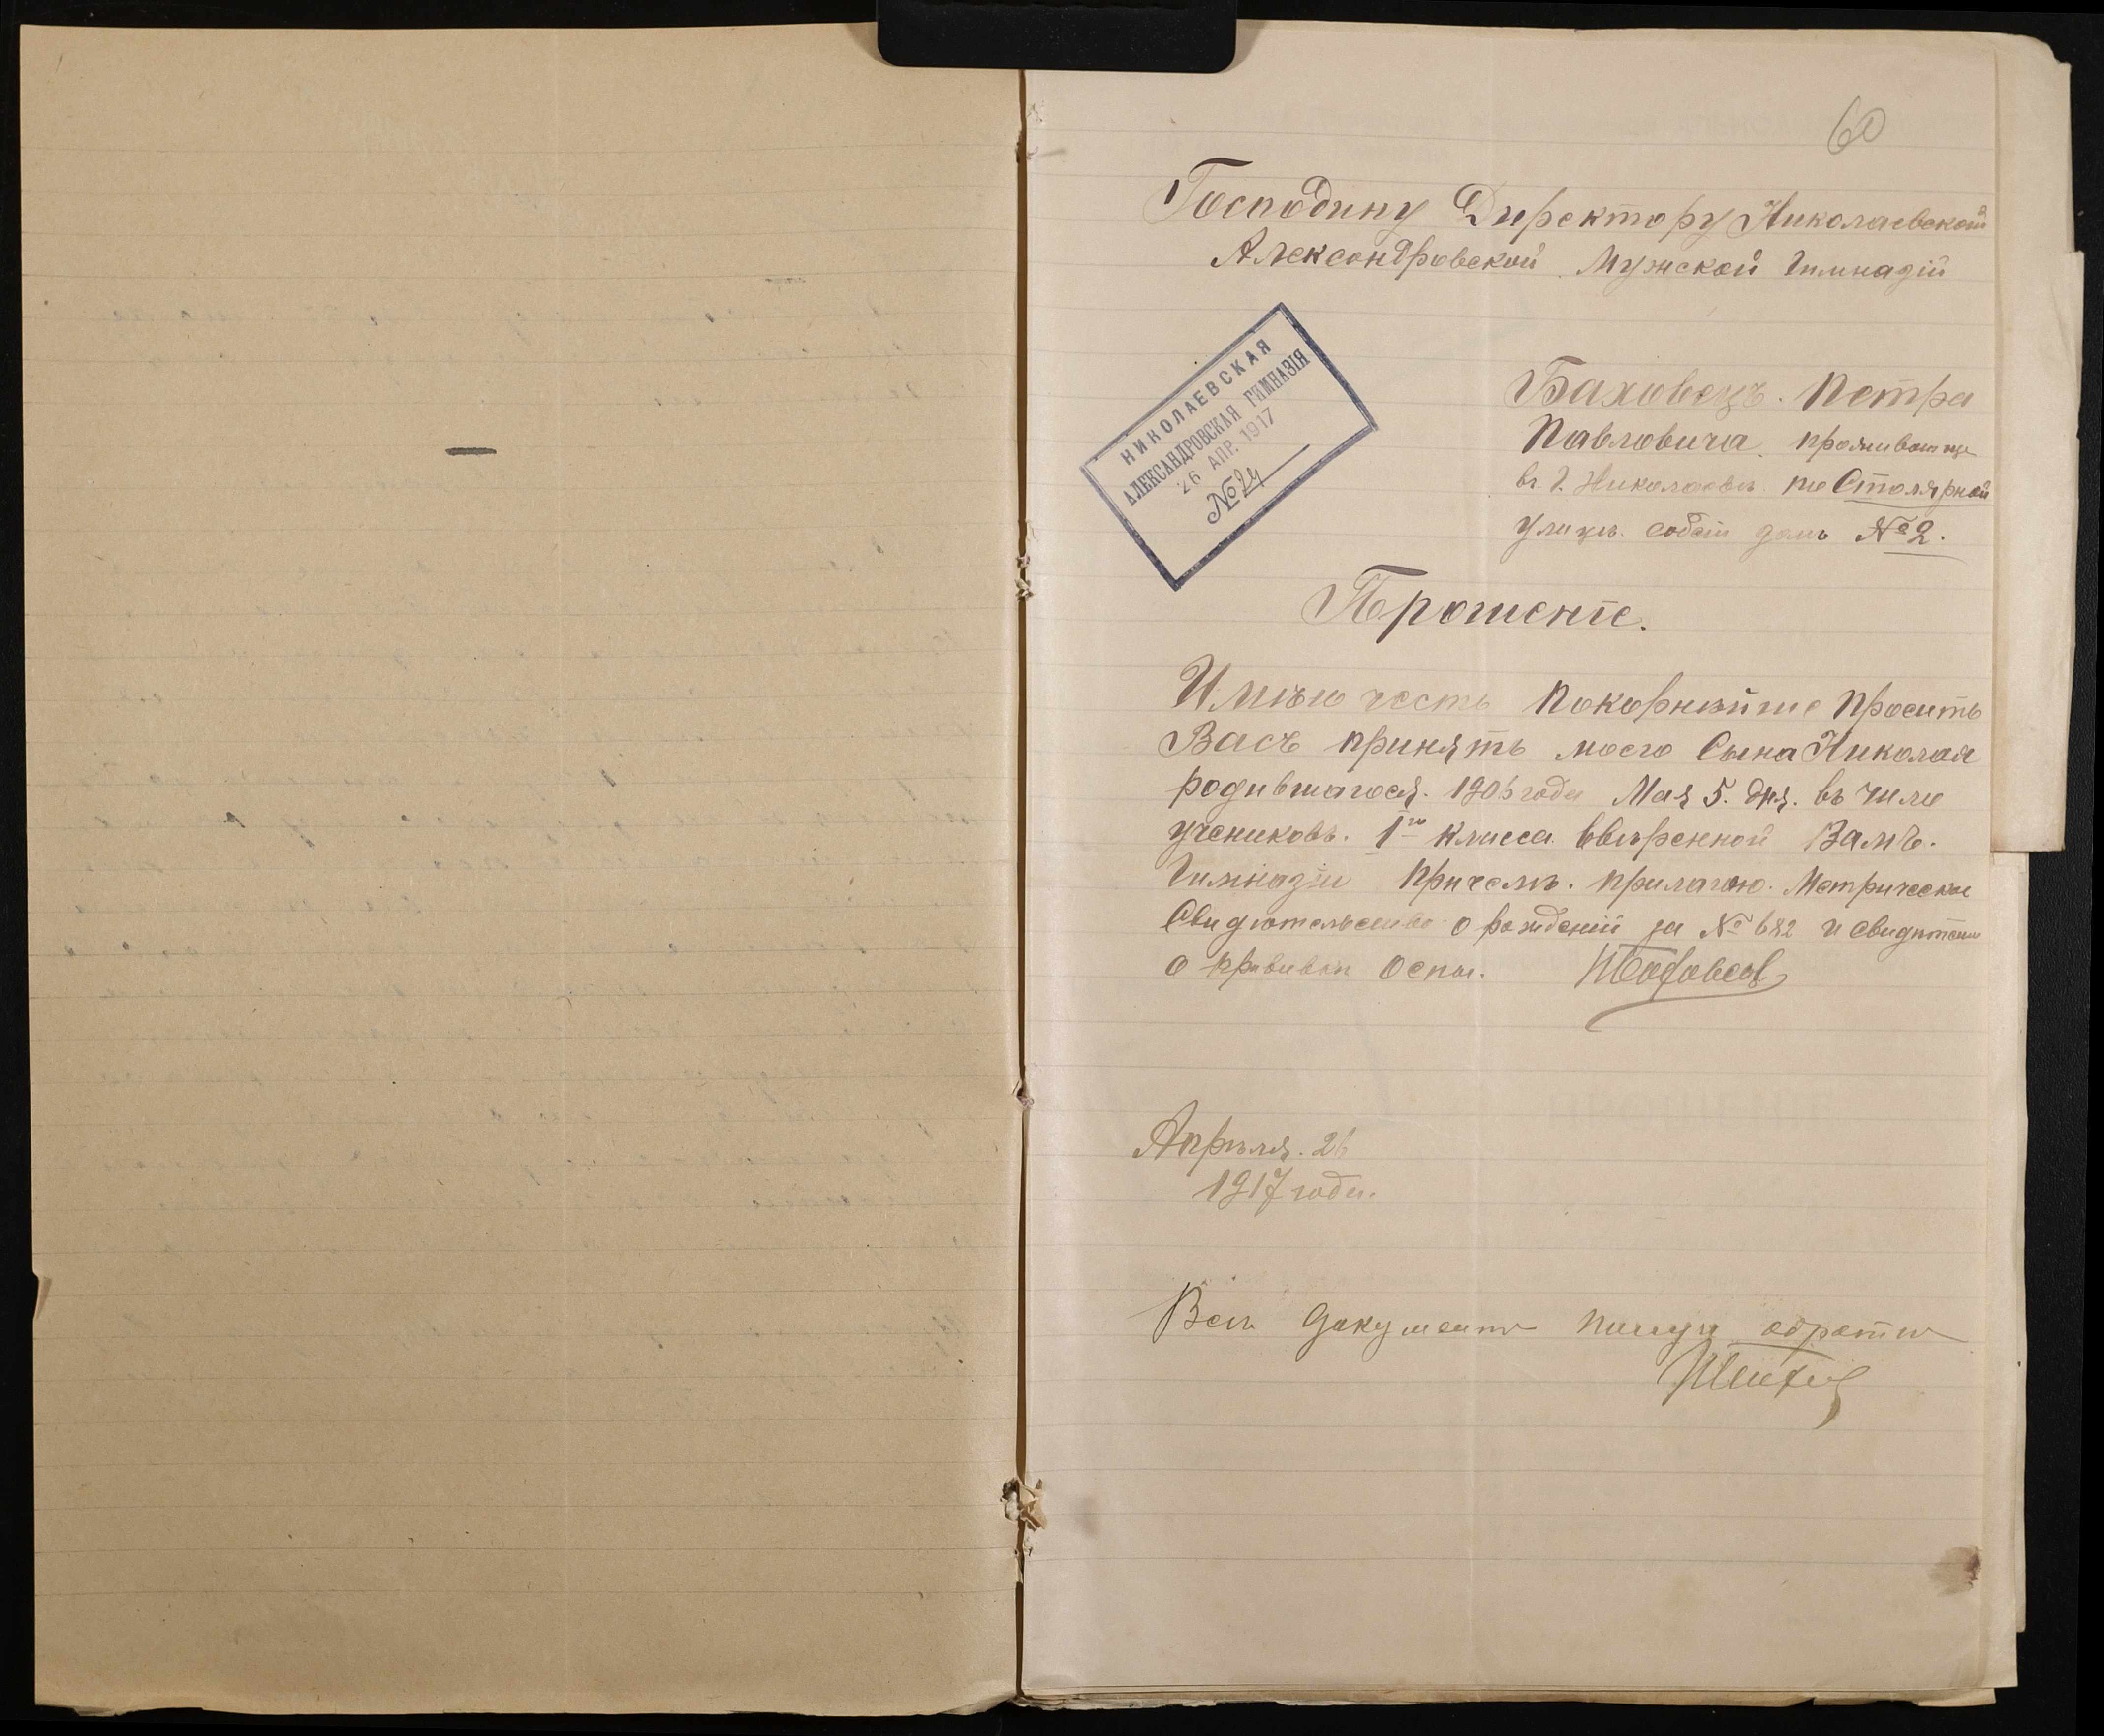 60
Господину Директору Николаевской
Александровской Мужской Гимназіи
НИКОЛАЕВСКАЯ
АЛЕКСАНДРОВСКАЯ ГИМНАЗІЯ
26 АПР. 1917
№ 24
Баховецъ. Петра
Павловича. проживающе
въ г. Николаевъ. по Столярной
улицъ. собст домъ № 2.
Прошеніе.
Имѣю честь покорнѣйше просить
Васъ принять моего Сына Николая
родившагося. 1906 года Мая 5. дня. въ число
учениковъ. 1го класса ввѣренной Вамъ.
Гимназіи причемъ. прилагаю. Метрическое
Свидѣтельство о рожденіи за № 682 и свидѣтель
о прививки оспы. ПБаховец
Апрѣля. 26
1917 года.
Всѣ документы получи обратно